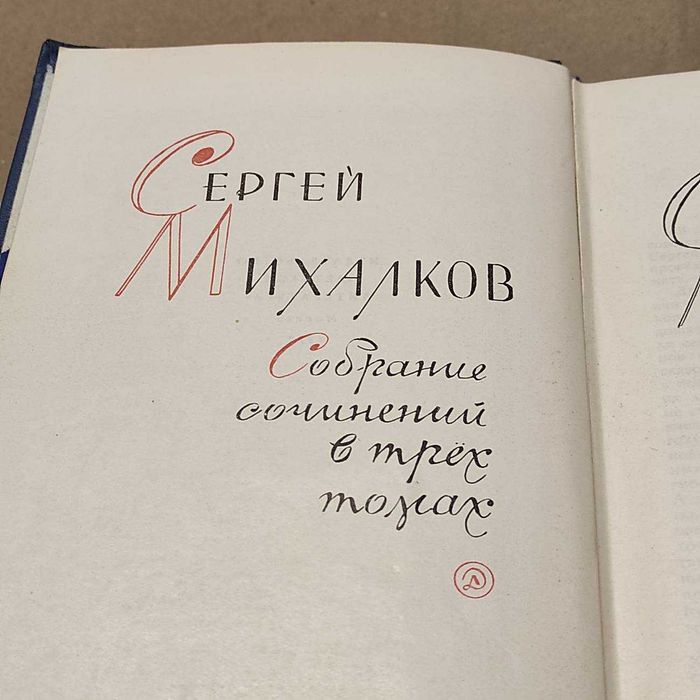 Сергей
Михалков
Собрание
сочинений
в трёх
томах
Д